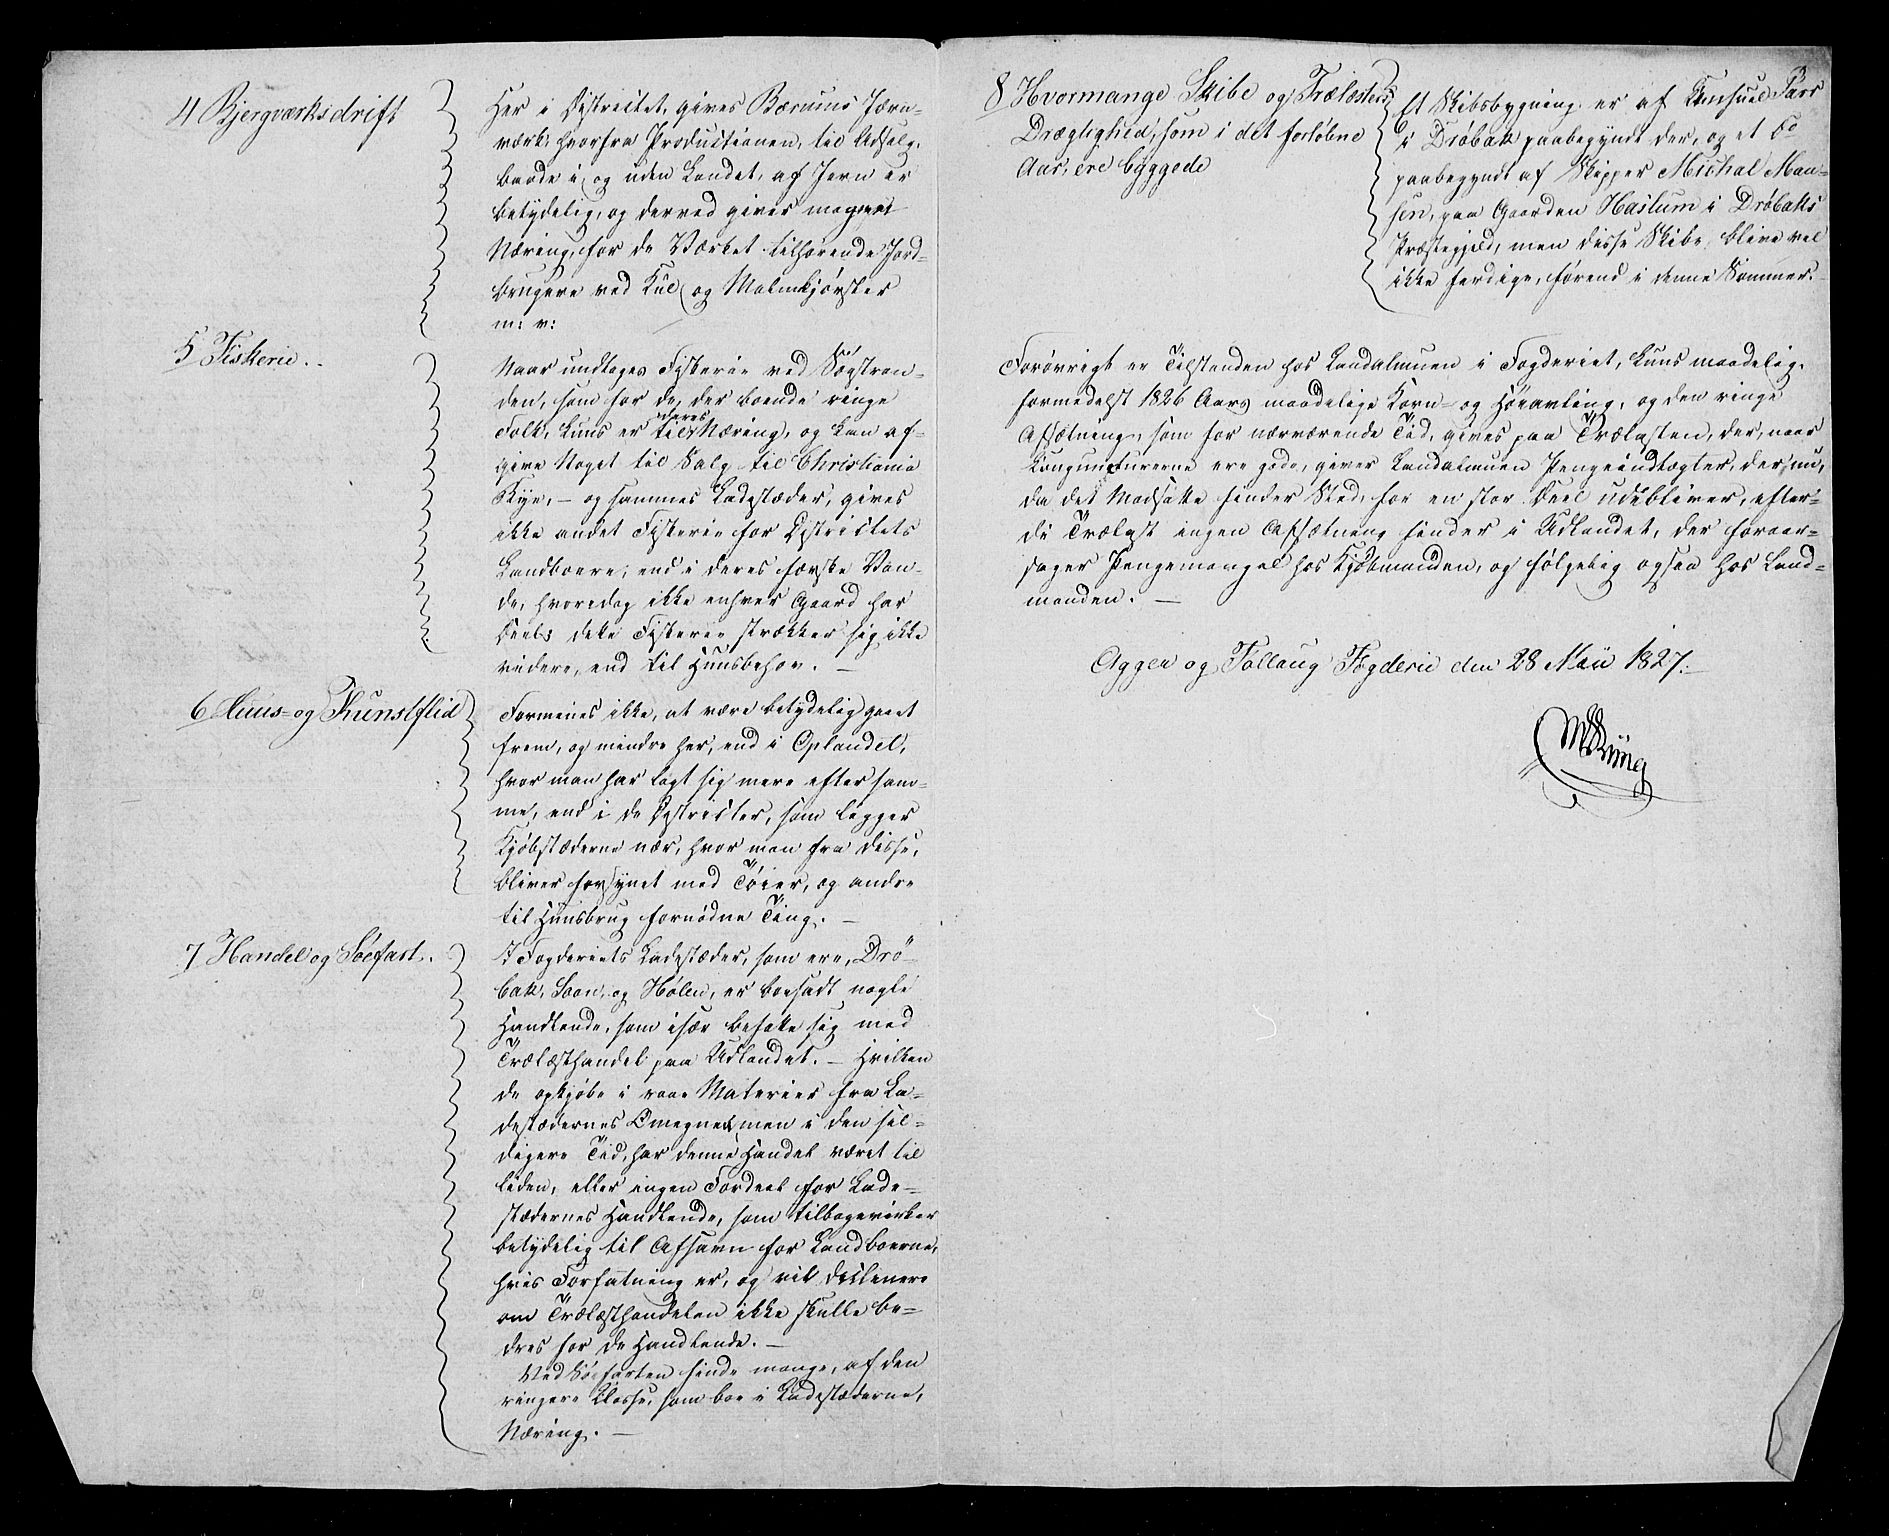 4 Bjergværksdrift
Her i Districtet, gives Bærums Jern-
værk, hvorfra Productionen, til Udsalg,
baade i, og uden Landet, af Jern er
betydelig, og derved gives meget
Næring, for de Værket tilhørende Jord-
brugere ved Kul, og Malmkjørsler
m: v:
5 Fiskerie.
Naar undtages Fiskerie ved Søestran-
den, som for de, der boende ringe
Folk, kuns er til deres Næring, og kan af-
give Noget til Salg til Christiania
Bye, – og sammes Ladestæder, gives
ikke andet Fiskerie for Districtets
Landboere, end i deres færske Van-
de, hvoredog ikke enhver Gaard har
Deel; dette Fiskerie strækker sig ikke
videre, end til Huusbehov. –
6 Huus- og Kunstflid
Formenes ikke, at være betydelig gaaet
frem, og mindre her, end i Oplandet,
hvor man har lagt sig mere efter sam-
me, end i de Districter, som ligger
Kjøbstæderne nær, hvor man fra disse,
bliver forsynet med Tøier, og andre
til Huusbrug fornødne Ting. –
7 Handel og Søefart.
I Fogderiets Ladestæder, som ere, Drø-
bak, Soon, og Hølen, er boesadt nogle
Handlende, som især befatte sig med
Trælasthandel paa Udlandet. – Hvilken
de opkjøbe i raae Materier fra La-
destædernes Omegne, men i den sil-
digere Tid, har denne Handel været til
liden, eller ingen Fordeel for Lade-
stædernes Handlende, som tilbagevirker
betydelig til Afsavn for Landboerne,
hvis Forfatning er, og vil declinere
om Trælasthandelen ikke skulle be-
dres for de Handlende. –
Ved Søefarten finde mange, af den
ringere Klasse, som boe i Ladestæderne,
Næring. –
8 Hvormange Skibe og Trælesters
Drægtighed, som i det forløbne
Aar, ere byggede
Et Skibsbygning er af Consuel Parr
i Drøbak paabegyndt der, og et do
paabegyndt af Skipper Michal Han-
sen, paa Gaarden Haslum i Drøbaks
Præstegjeld, men disse Skibe, blive vel
ikke færdige, førend i denne Sommer.
Forøvrigt er Tilstanden hos Landalmuen i Fogderiet, kuns maadelig,
formedelst 1826 Aars maadelige Korn- og Høeavling, og den ringe
Afsætning, som for nærværende Tid, gives paa Trælasten, der, naar
Conguncturerne ere gode, giver Landalmuen Pengeindtægter, der nu,
da det Modsatte finder Sted, for en stor Deel udebliver, efter-
di Trælast ingen Afsætning finder i Udlandet, der foraar-
sager Pengemangel hos Kjøbmanden, og følgelig ogsaa hos Land-
manden. –
Agger og Follaug Fogderie den 28 Maii 1827. –